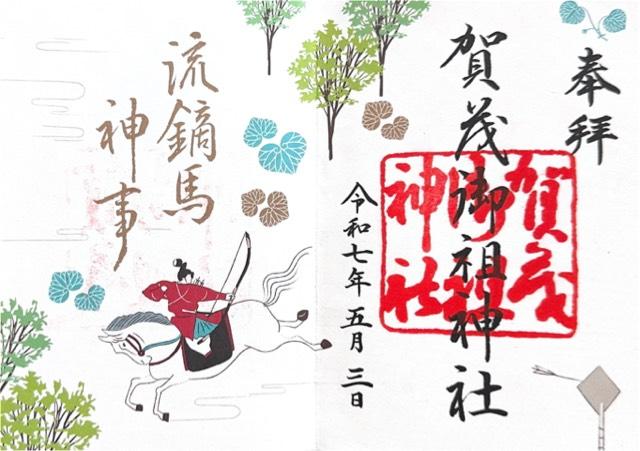 奉拝
賀茂御祖神社
賀茂
御祖
神社
令和七年五月三日
流鏑馬
神事